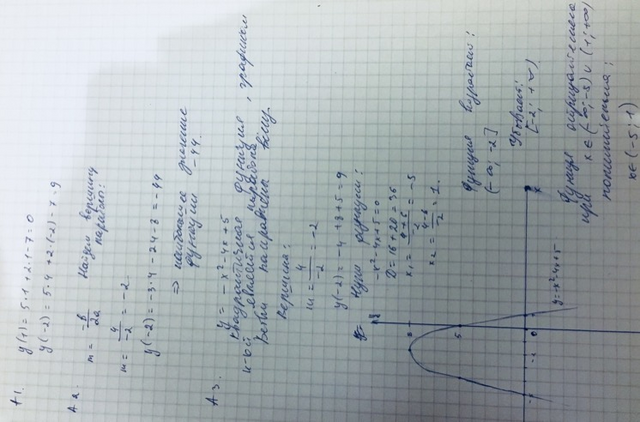 A1.
y(1) = 5·1 + 2·1 - 7 = 0
y(-2) = 5·4 + 2·(-2) - 7 = 9
A-2.
m = -b/2a
Найдем вершину параболы:
m = 4/-2 = -2.
y(-2) = -3·4 - 24 - 8 = -44
⇒ наибольшее значение
функции -44.
A-3.
y = -x² - 4x + 5
квадратичная функция, графиком
является парабола
ветви направлены вниз.
вершина:
m = 4/-2 = -2
y(-2) = -4 + 8 + 5 = 9
Нули функции:
-x² - 4x + 5 = 0
D = 16 + 20 = 36
x₁ = 4+6/-2 = -5
x₂ = 4-6/-2 = 1.
y=-x²-4x+5
функция возрастает:
(-∞; -2]
убывает:
[-2; +∞)
функция отрицательна
при x∈(-∞; -5)∪(1; +∞)
положительна:
x∈(-5; 1)